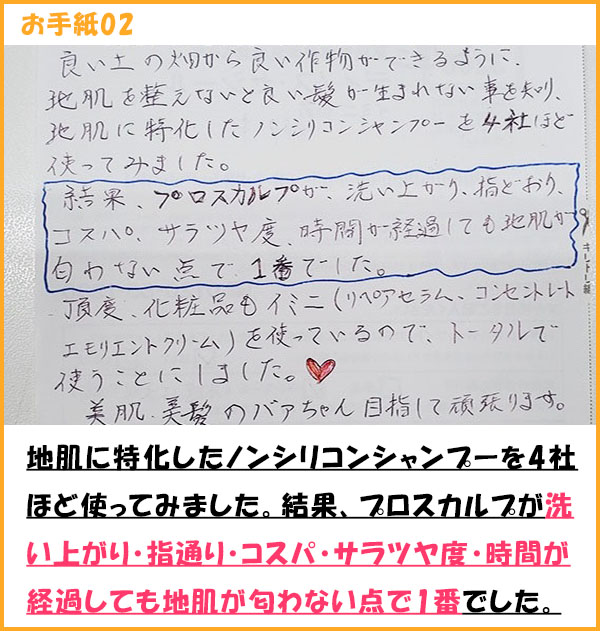 お手紙02
良い土の畑から良い作物ができるように、
地肌を整えないと良い髪が生まれない事を知り、
地肌に特化したノンシリコンシャンプーを4社ほど
使ってみました。
結果、プロスカルプが、洗い上がり、指どおり、
コスパ、サラツヤ度、時間が経過しても地肌が
匂わない点で1番でした。
頂度、化粧品もイミニ(リペアセラム、コンセントレート
エモリエントクリーム)を使っているので、トータルで
使うことにしました。
美肌、美髪のバアちゃん目指して頑張ります。
キリトリ線
地肌に特化したノンシリコンシャンプーを4社
ほど使ってみました。結果、プロスカルプが洗
い上がり・指通り・コスパ・サラツヤ度・時間が
経過しても地肌が匂わない点で1番でした。